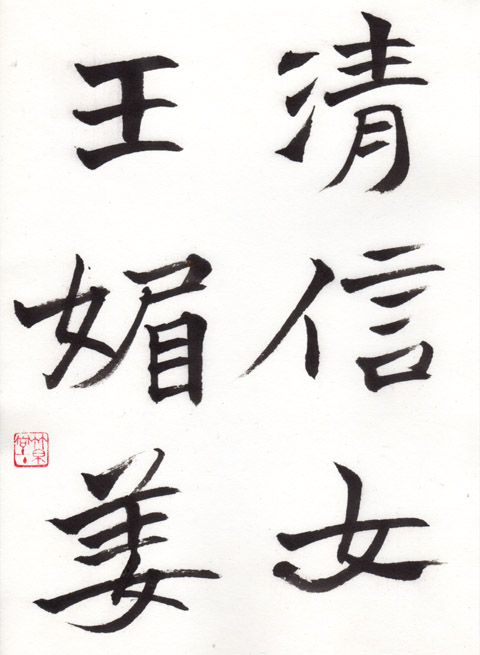 清信女
王媚姜